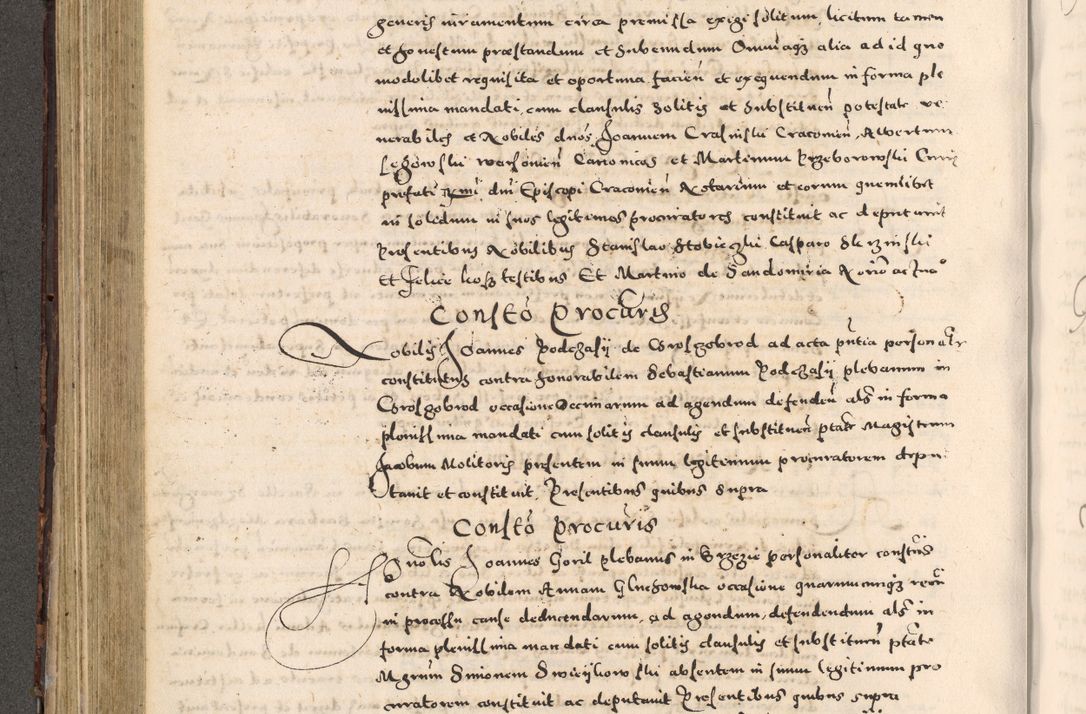 generis iuramentum circa premissa exigi solitum, licitum tamen
et honestum præstandum et subeundum Omniaqz alia ad id quo
modolibet requisita et oportuna facien̄ et exequendum in forma ple
nissima mandati, cum clausulis solitis et substituen̄ potestate ve
nerabiles et Nobiles dnos Joannem Crasinski Cracouien̄, Albertum
Legowski warsouien̄ Canonicos et Martinum Przeborowski Curiȩ
prefati Rmi dni Episcopi Cracouien̄ Notarium et eorum quemlibet
in solidum in suos legitimos procuratores constituit ac deputauit
Presentibus Nobilibus Stanislao Casparo
et Felice testibus Et Martino de Sandomiria Norio actuao
Constō Procuris
Nobilis Joannes Podchasij de Grosgobrod ad acta pntia personalr
constitutus contra honorabilem Sebastianum Podchasij plebanum in
Grosgobrod occasione Decimarum ad agendum defenden̄ als in forma
plenissima mandati cum solitis clausulis et substituen̄ ptate Magistrum
Jacobum Molitoris presentem in suum legitimum procuratorem depu
tauit et constituit, Presentibus quibus supra
Constō Procuris
Hnolis Joannes Goril plebanus in Brzezie personaliter constus
contra Nobilem Annam Gluchowska occasione quarumcunqz rerū
in processu cause deducendarum, ad agendum, defendendum als in
forma plenissima mandati cum solitis clausulis et substituen̄ ptate
Mgrum Simonem absentem in suum legitimum pro
curatorem constituit ac deputauit Presentibus quibus supra